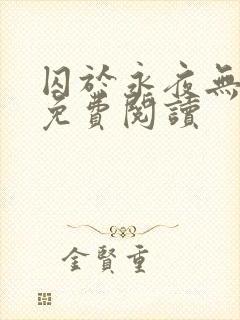 囚於永夜無
免費閱讀
金賢重